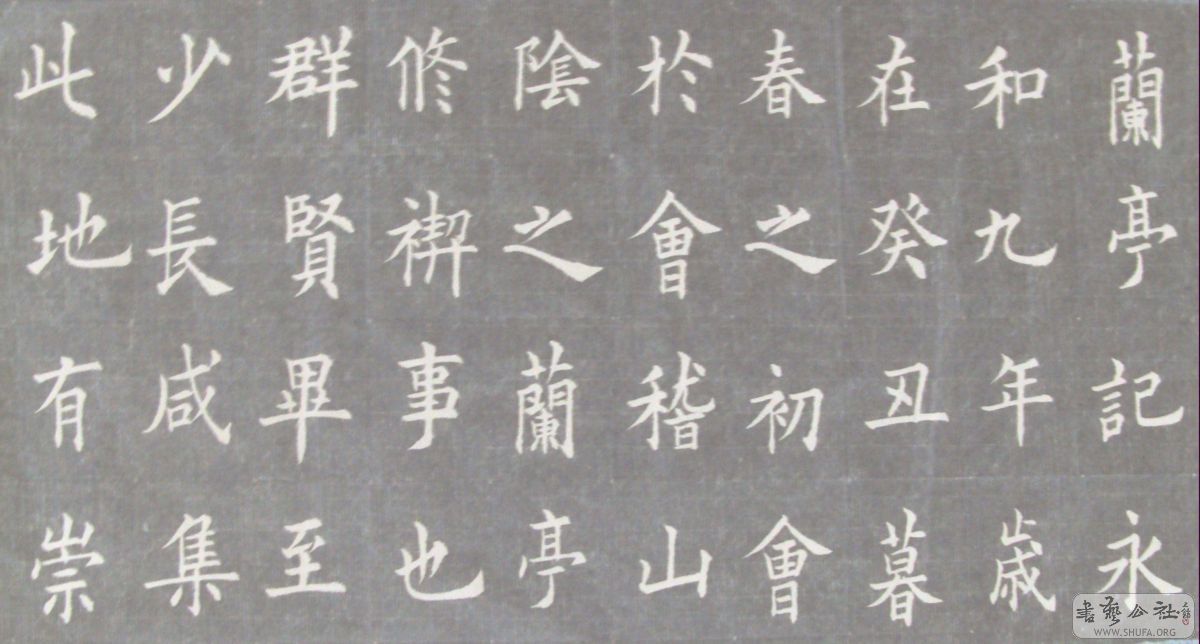 蘭亭記永
和九年歳
在癸丑暮
春之初會
於會稽山
陰之蘭亭
修禊事也
群賢畢至
少長咸集
此地有崇
書藝公社
WWW.SHUFA.ORG